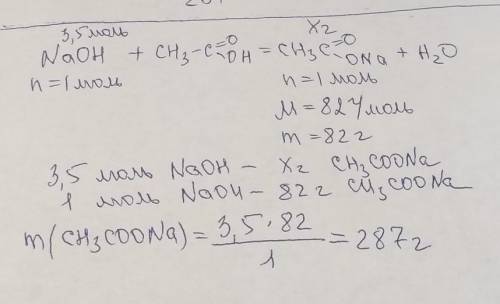 3,5 моль x г
NaOH + CH₃-C=O OH = CH₃C=O ONa + H₂O
n=1моль n=1моль
M=82г/моль
m=82г
3,5 моль NaOH – x г CH₃COONa
1 моль NaOH – 82 г CH₃COONa
m(CH₃COONa) = 3,5·82 / 1 = 287 г